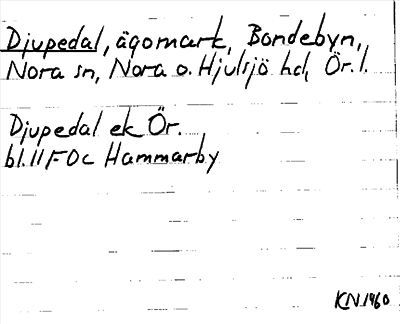 Djupedal, ägomark, Bondebyn,
Nora sn, Nora o. Hjulsjö hd, Ör. l.
Djupedal ek Ör.
bl. 11F0c Hammarby
KN 1960